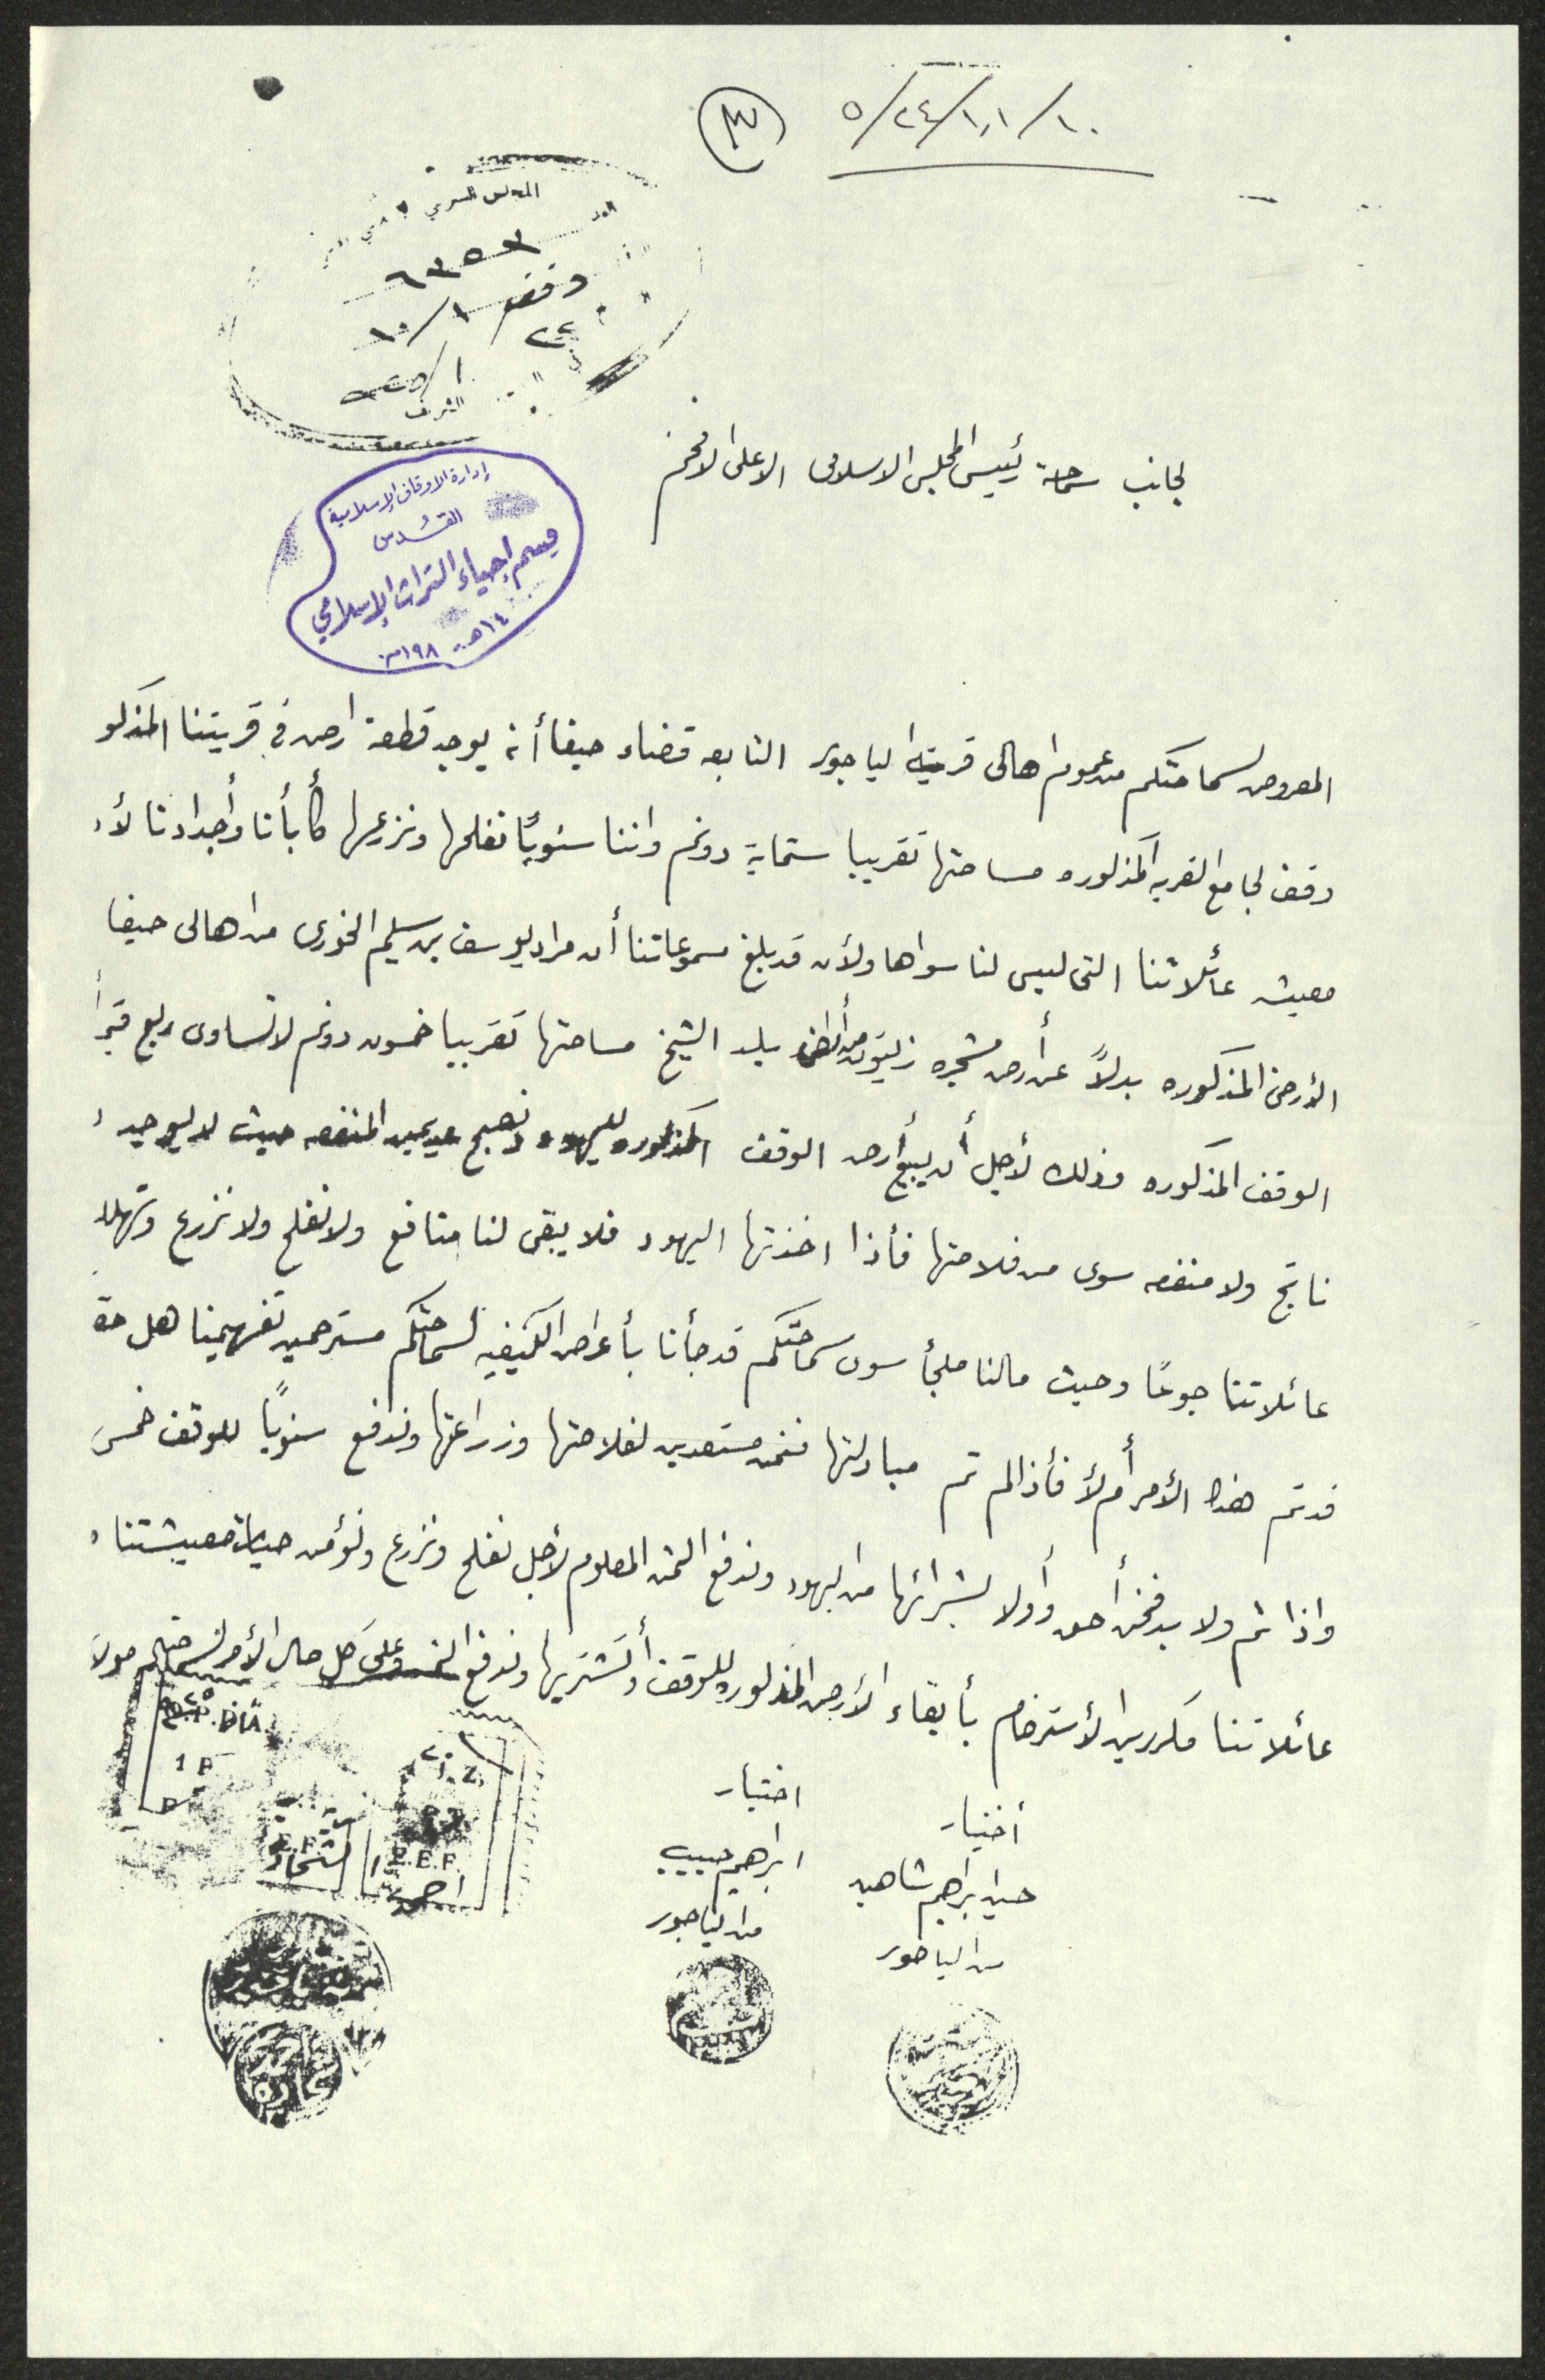 ١٠/١،١/٢٤/٥
٣
٦٣٥٣
وقف
١٠/١
٢٤
إدارة الاوقاف الإسلامية
القدس
قسم إحياء التراث الإسلامي
لجانب سماحة رئيس المجلس الاسلامى الاعلى الافخم
المعروض لسماحتكم من عموم اهالى قرية الياجور التابعه قضاء حيفا أنه يوجد قطعة ارض في قريتنا المذكو
وقف لجامع القريه المذكوره مساحتها تقريبا ستماية دونم واننا سنويًا نفلحها ونزرعها كأبأنا وأجدادنا لأن
معيشة عائلاتنا التى ليس لنا سواها ولأن قد بلغ مسموعاتنا أن مراد يوسف بن سليم الخورى من اهالى حيفا
الأرض المذكوره بدلاً عن أرض مشجره زيتون من أراضى بلد الشيخ مساحتها تقريبا خمسون دونم لا تساوى ربع قيمة
الوقف المذكوره وذلك لأجل أن يبيع أرض الوقف المذكوره لليهود ونصبح عديمين المنفعه حيث لا يوجد
ناتج ولا منفعه سوى من فلاحتها فأذا اخذتها اليهود فلا يبقى لنا منافع ولا نفلح ولا نزرع وتهلك
عائلاتنا جوعًا وحيث مالنا ملجأ سوى سماحتكم قد جأنا بأعراض الكيفيه لسماحتكم مسترحمين تفهيمنا هل حقا
قد تم هذا الأمر أم لأ فأذا لم تم مبادلتها فنحن مستعدين لفلاحتها وزراعتها وندفع سنويًا للوقف خمس
واذا تم ولا بد فنحن أحق وأولا بشرائها من اليهود وندفع الثمن المعلوم لأجل نفلح ونزرع ونؤمن حياة معيشتنا و
عائلاتنا مكررين الأسترحام بأبقاء الأرض المذكوره للوقف أو نشتريها وندفع الثمن وعلى كل حال الأمر لسماحتكم مولا
أختيار
حسن ابراهيم شاهين
من الياجور
اختيار
ابراهيم حبيب
من الياجور
1 P
P.E.F.